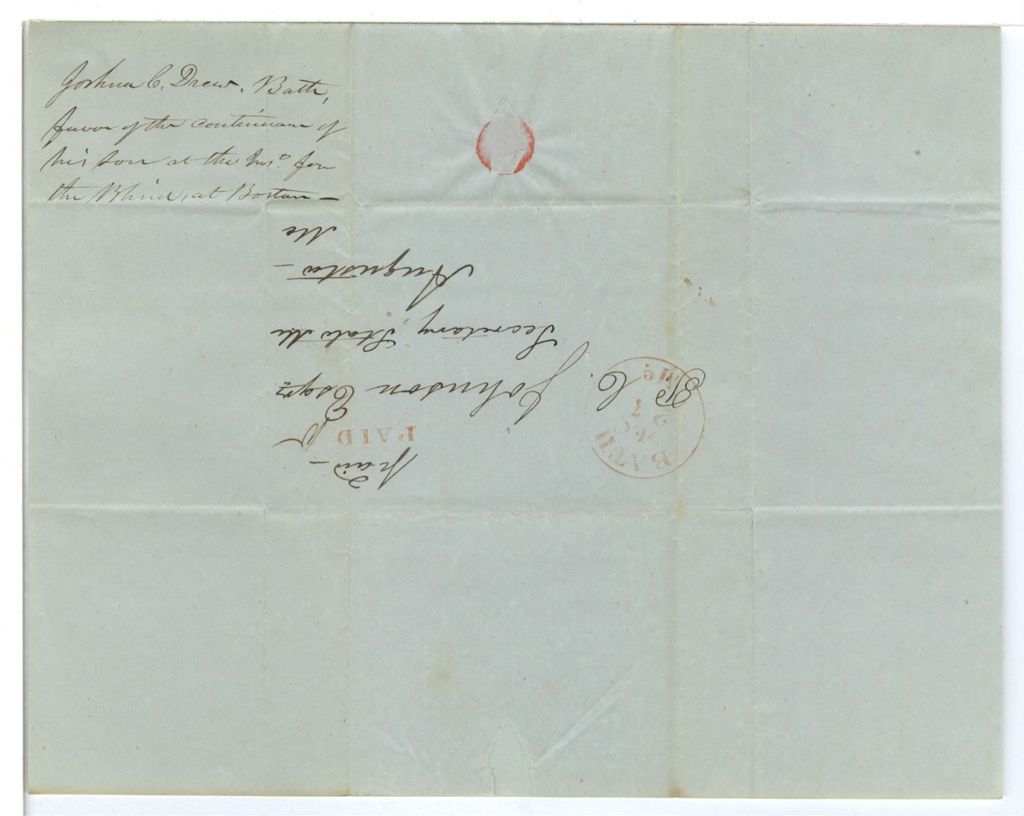 Joshua C. Drew. Bath,
favor of the continuance of
his son at the Inst. for
the Blind, at Boston —
Paid —
PAID
BATH
Me
P. C. Johnson Esqr
Secretary, State Me
Augusta —
Me